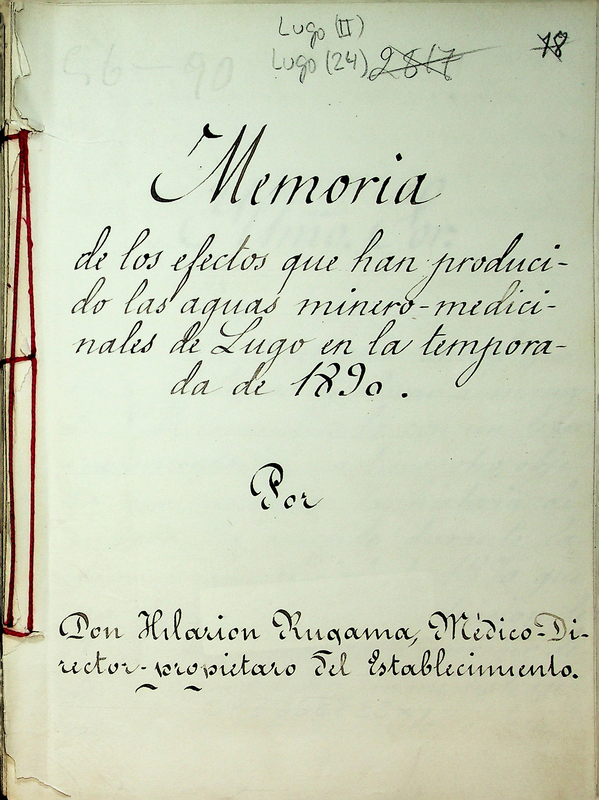 Lugo (II)
Lugo (24) 2817
18
Memoria
de los efectos que han produci-
do las aguas minero-medici-
nales de Lugo en la tempora-
da de 1890.
Por
Don Hilarion Rugama, Médico-Di-
rector-propietaro del Establecimiento.